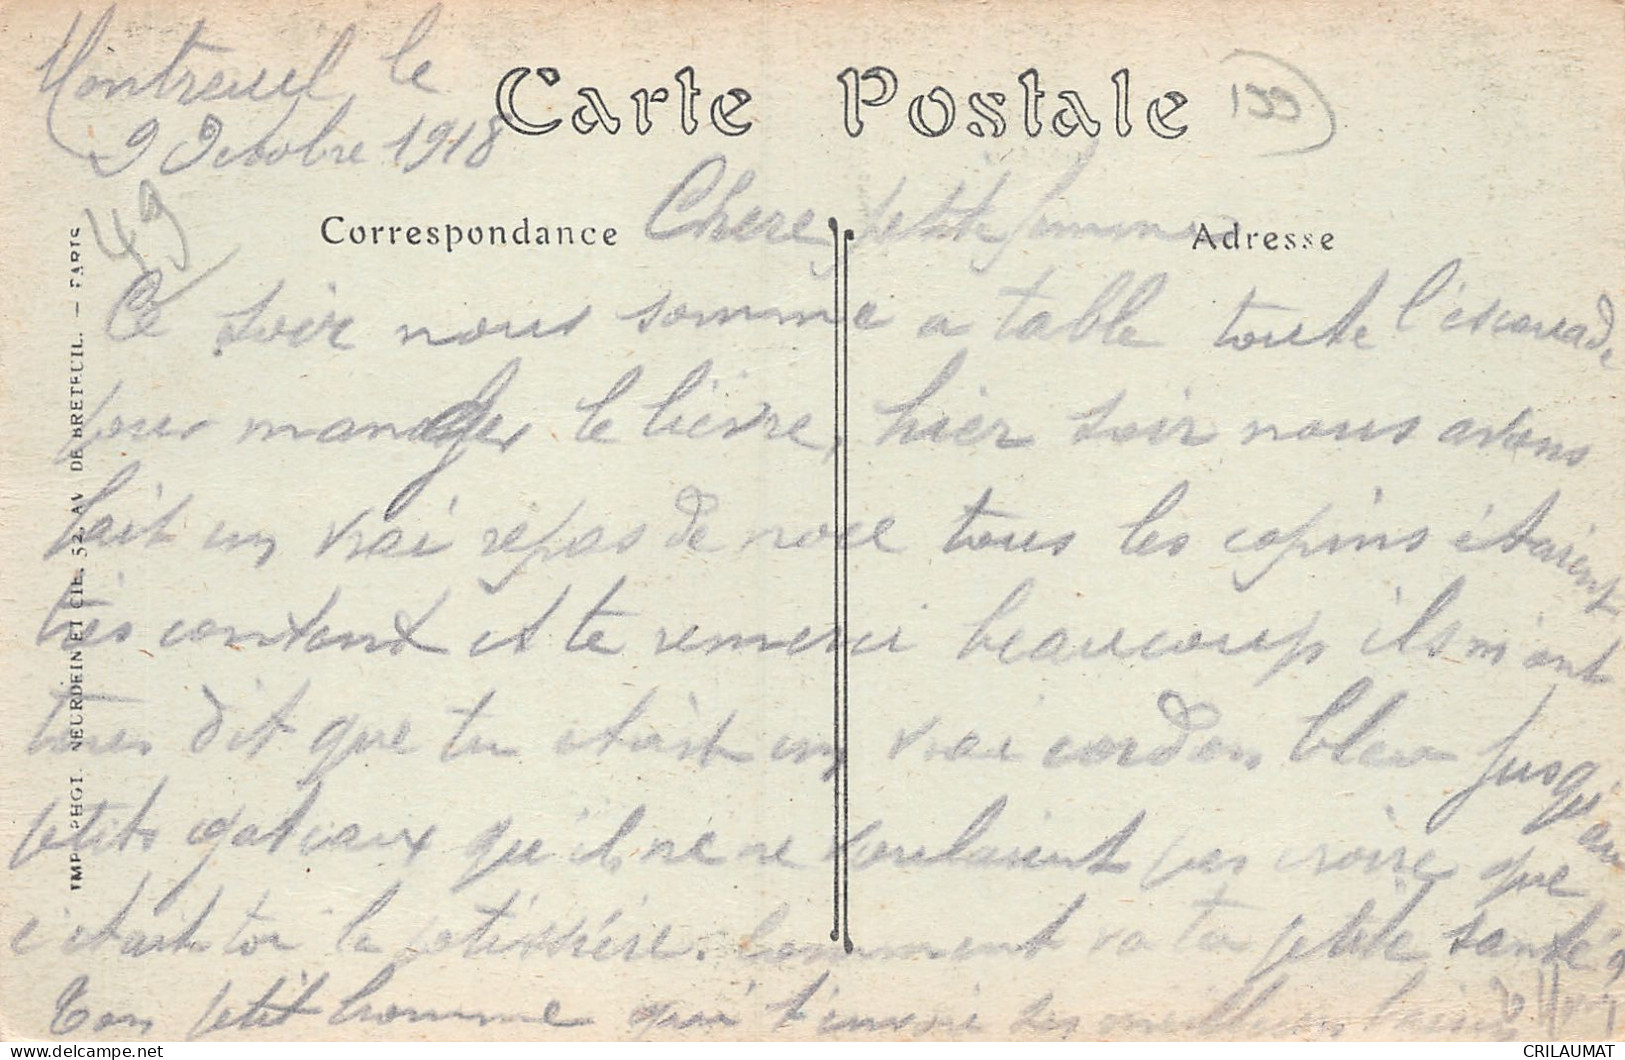 Montreuil, le
9 Octobre 1918
Carte Postale
133
49
Correspondance
Adresse
Chere petite femme
Ce soir nous somme a table toute l'escouade
pour manger le lièvre, hier soir nous avons
fait un vrai repas de noce tous les copins étaient
très content et te remerci beaucoup ils m'ont
tous dit que tu étáit un vrai cordon bleu jusqu'au
petits gateaux qu'il ne ne voulaient pas croire que
c'était toi la patissière. Comment va ta petite santé?
Ton petit homme qui t'envoi ses meilleurs baisers
IMP. PHOT. NEURDEIN ET CIE, 52, AV. DE BRETEUIL. — PARIS
CRILAUMAT